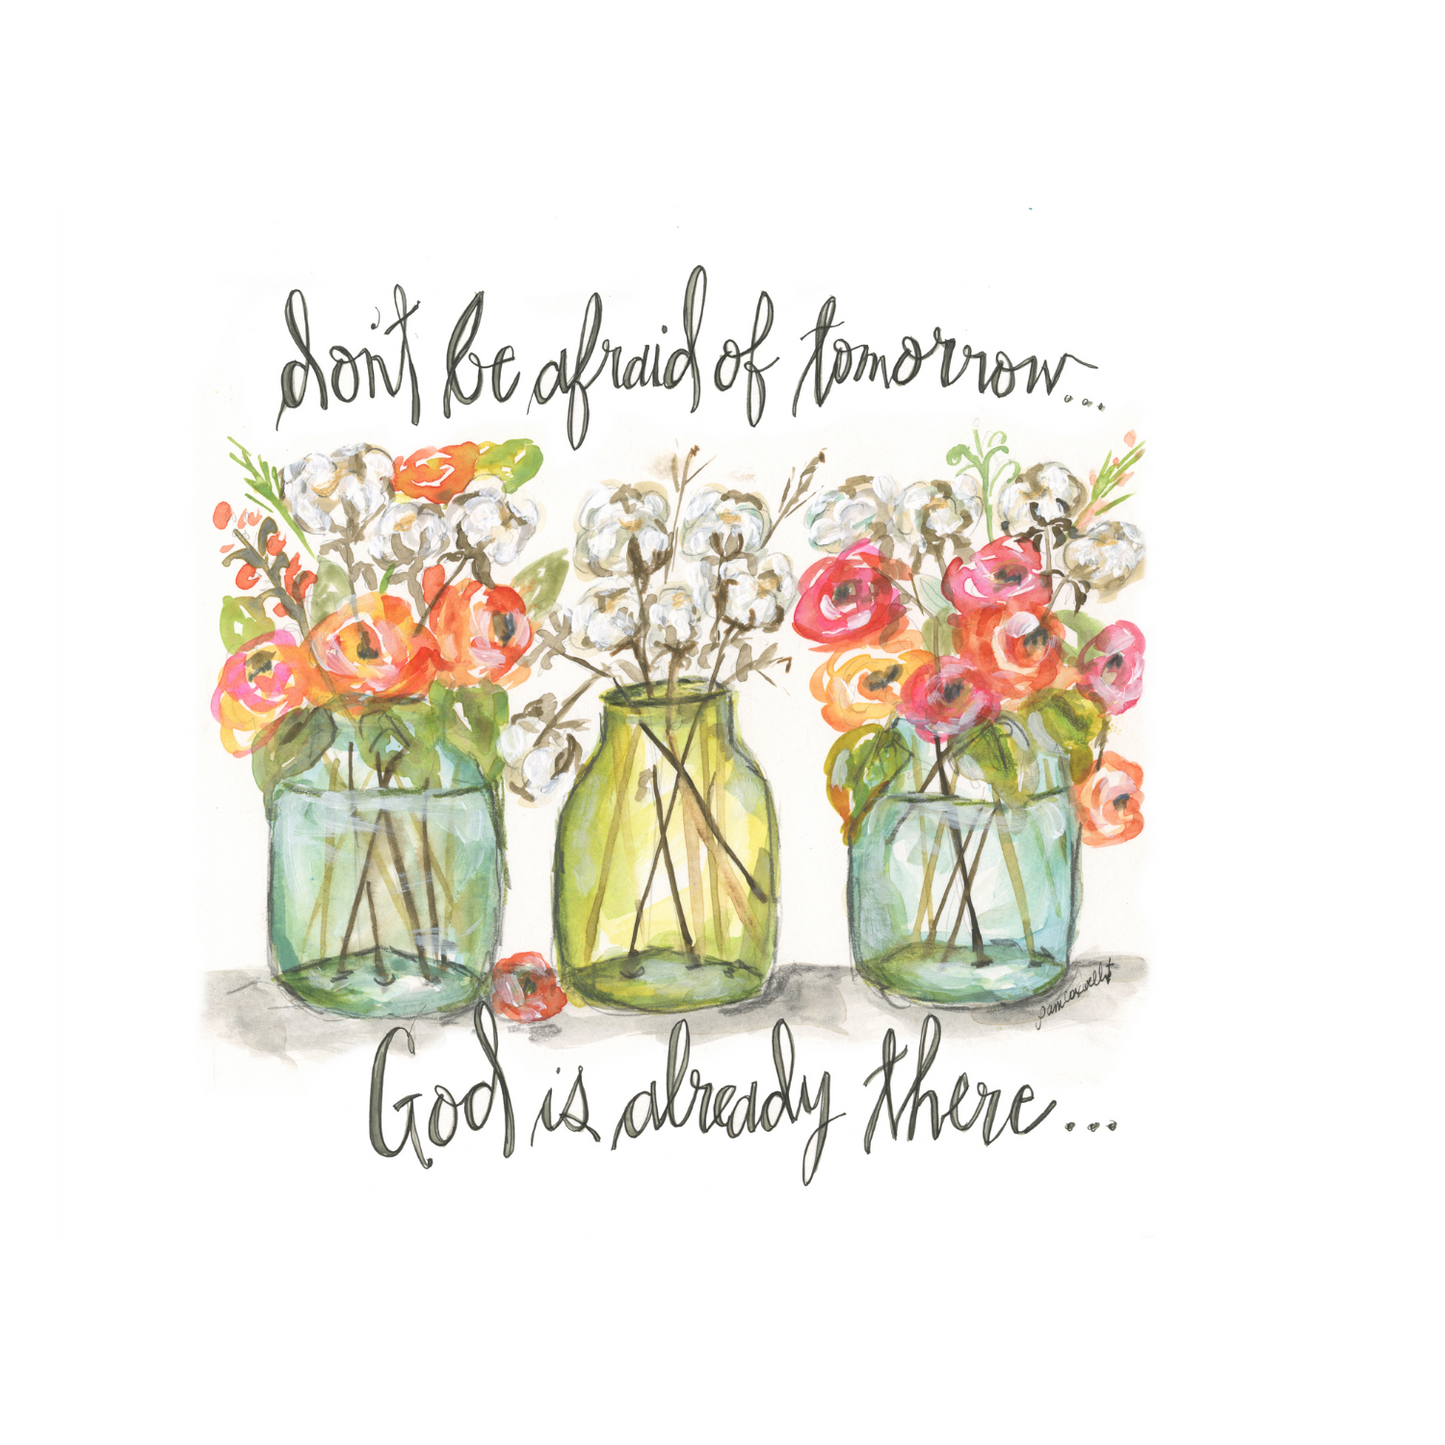 don't be afraid of tomorrow...
pamcoxwell
God is already there...